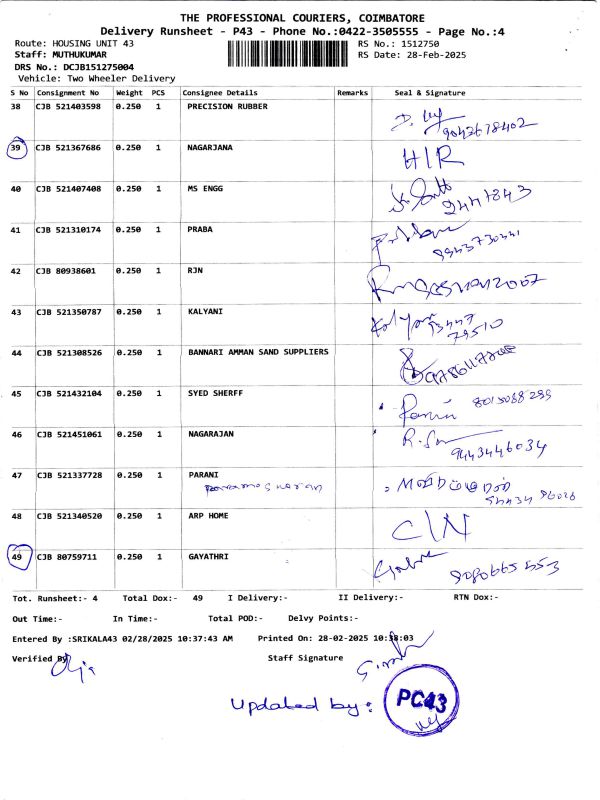 THE PROFESSIONAL COURIERS, COIMBATORE
Delivery Runsheet - P43 - Phone No.:0422-3505555 - Page No.:4
Route: HOUSING UNIT 43 RS No.: 1512750
Staff: MUTHUKUMAR RS Date: 28-Feb-2025
DRS No.: DCJB151275004
Vehicle: Two Wheeler Delivery
S No Consignment No Weight PCS Consignee Details Remarks Seal & Signature
38 CJB 521403598 0.250 1 PRECISION RUBBER
39 CJB 521367686 0.250 1 NAGARJANA H/R
40 CJB 521407408 0.250 1 MS ENGG
41 CJB 521310174 0.250 1 PRABA
42 CJB 80938601 0.250 1 RJN
43 CJB 521350787 0.250 1 KALYANI
44 CJB 521308526 0.250 1 BANNARI AMMAN SAND SUPPLIERS
45 CJB 521432104 0.250 1 SYED SHERFF
46 CJB 521451061 0.250 1 NAGARAJAN 9443446034
47 CJB 521337728 0.250 1 PARANI
48 CJB 521340520 0.250 1 ARP HOME C/N
49 CJB 80759711 0.250 1 GAYATHRI
Tot. Runsheet:- 4 Total Dox:- 49 I Delivery:- II Delivery:- RTN Dox:-
Out Time:- In Time:- Total POD:- Delvy Points:-
Entered By :SRIKALA43 02/28/2025 10:37:43 AM Printed On: 28-02-2025 10:38:03
Verified By Staff Signature
Updated by: PC43